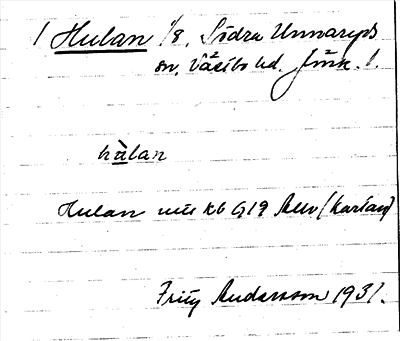 1 Hulan 1/8, Södra Unnaryds
sn, Västbo hd. Jönk. l.
hùlan
Hulan uttt kb G19 AUv (kartan)
Fritz Andersson 1931.